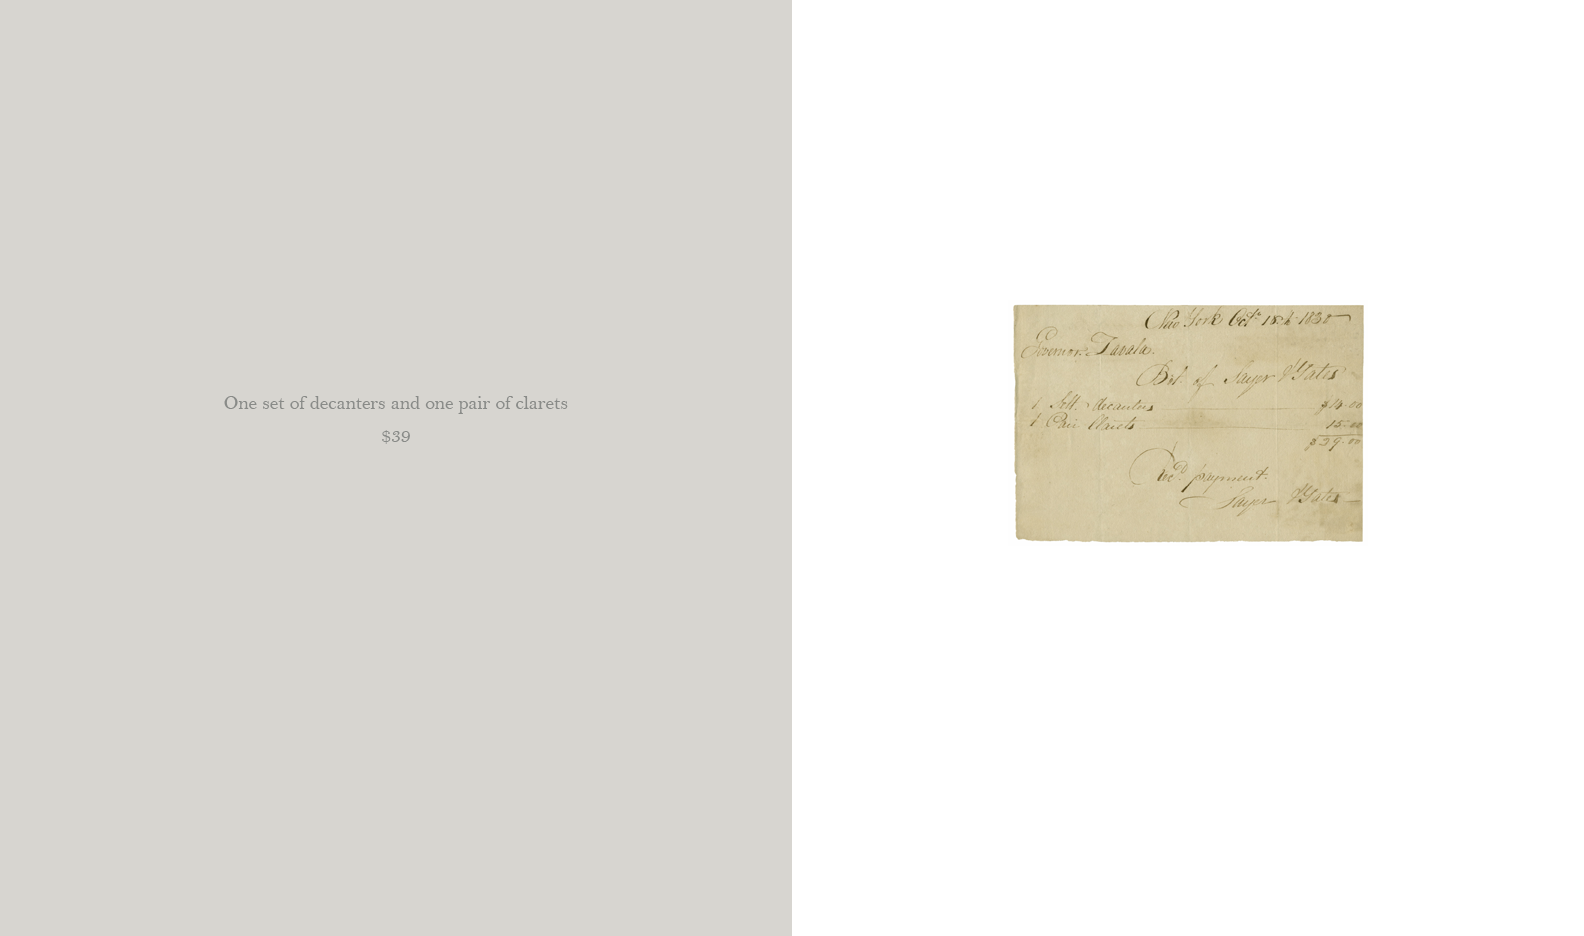 One set of decanters and one pair of clarets
$39
New York Oct 1830
Governor
Bot of Sayer & Yates
1 Sett decanters
1 Pair Clarets 15.00
$39.00
Recd payment
Sayer & Yates